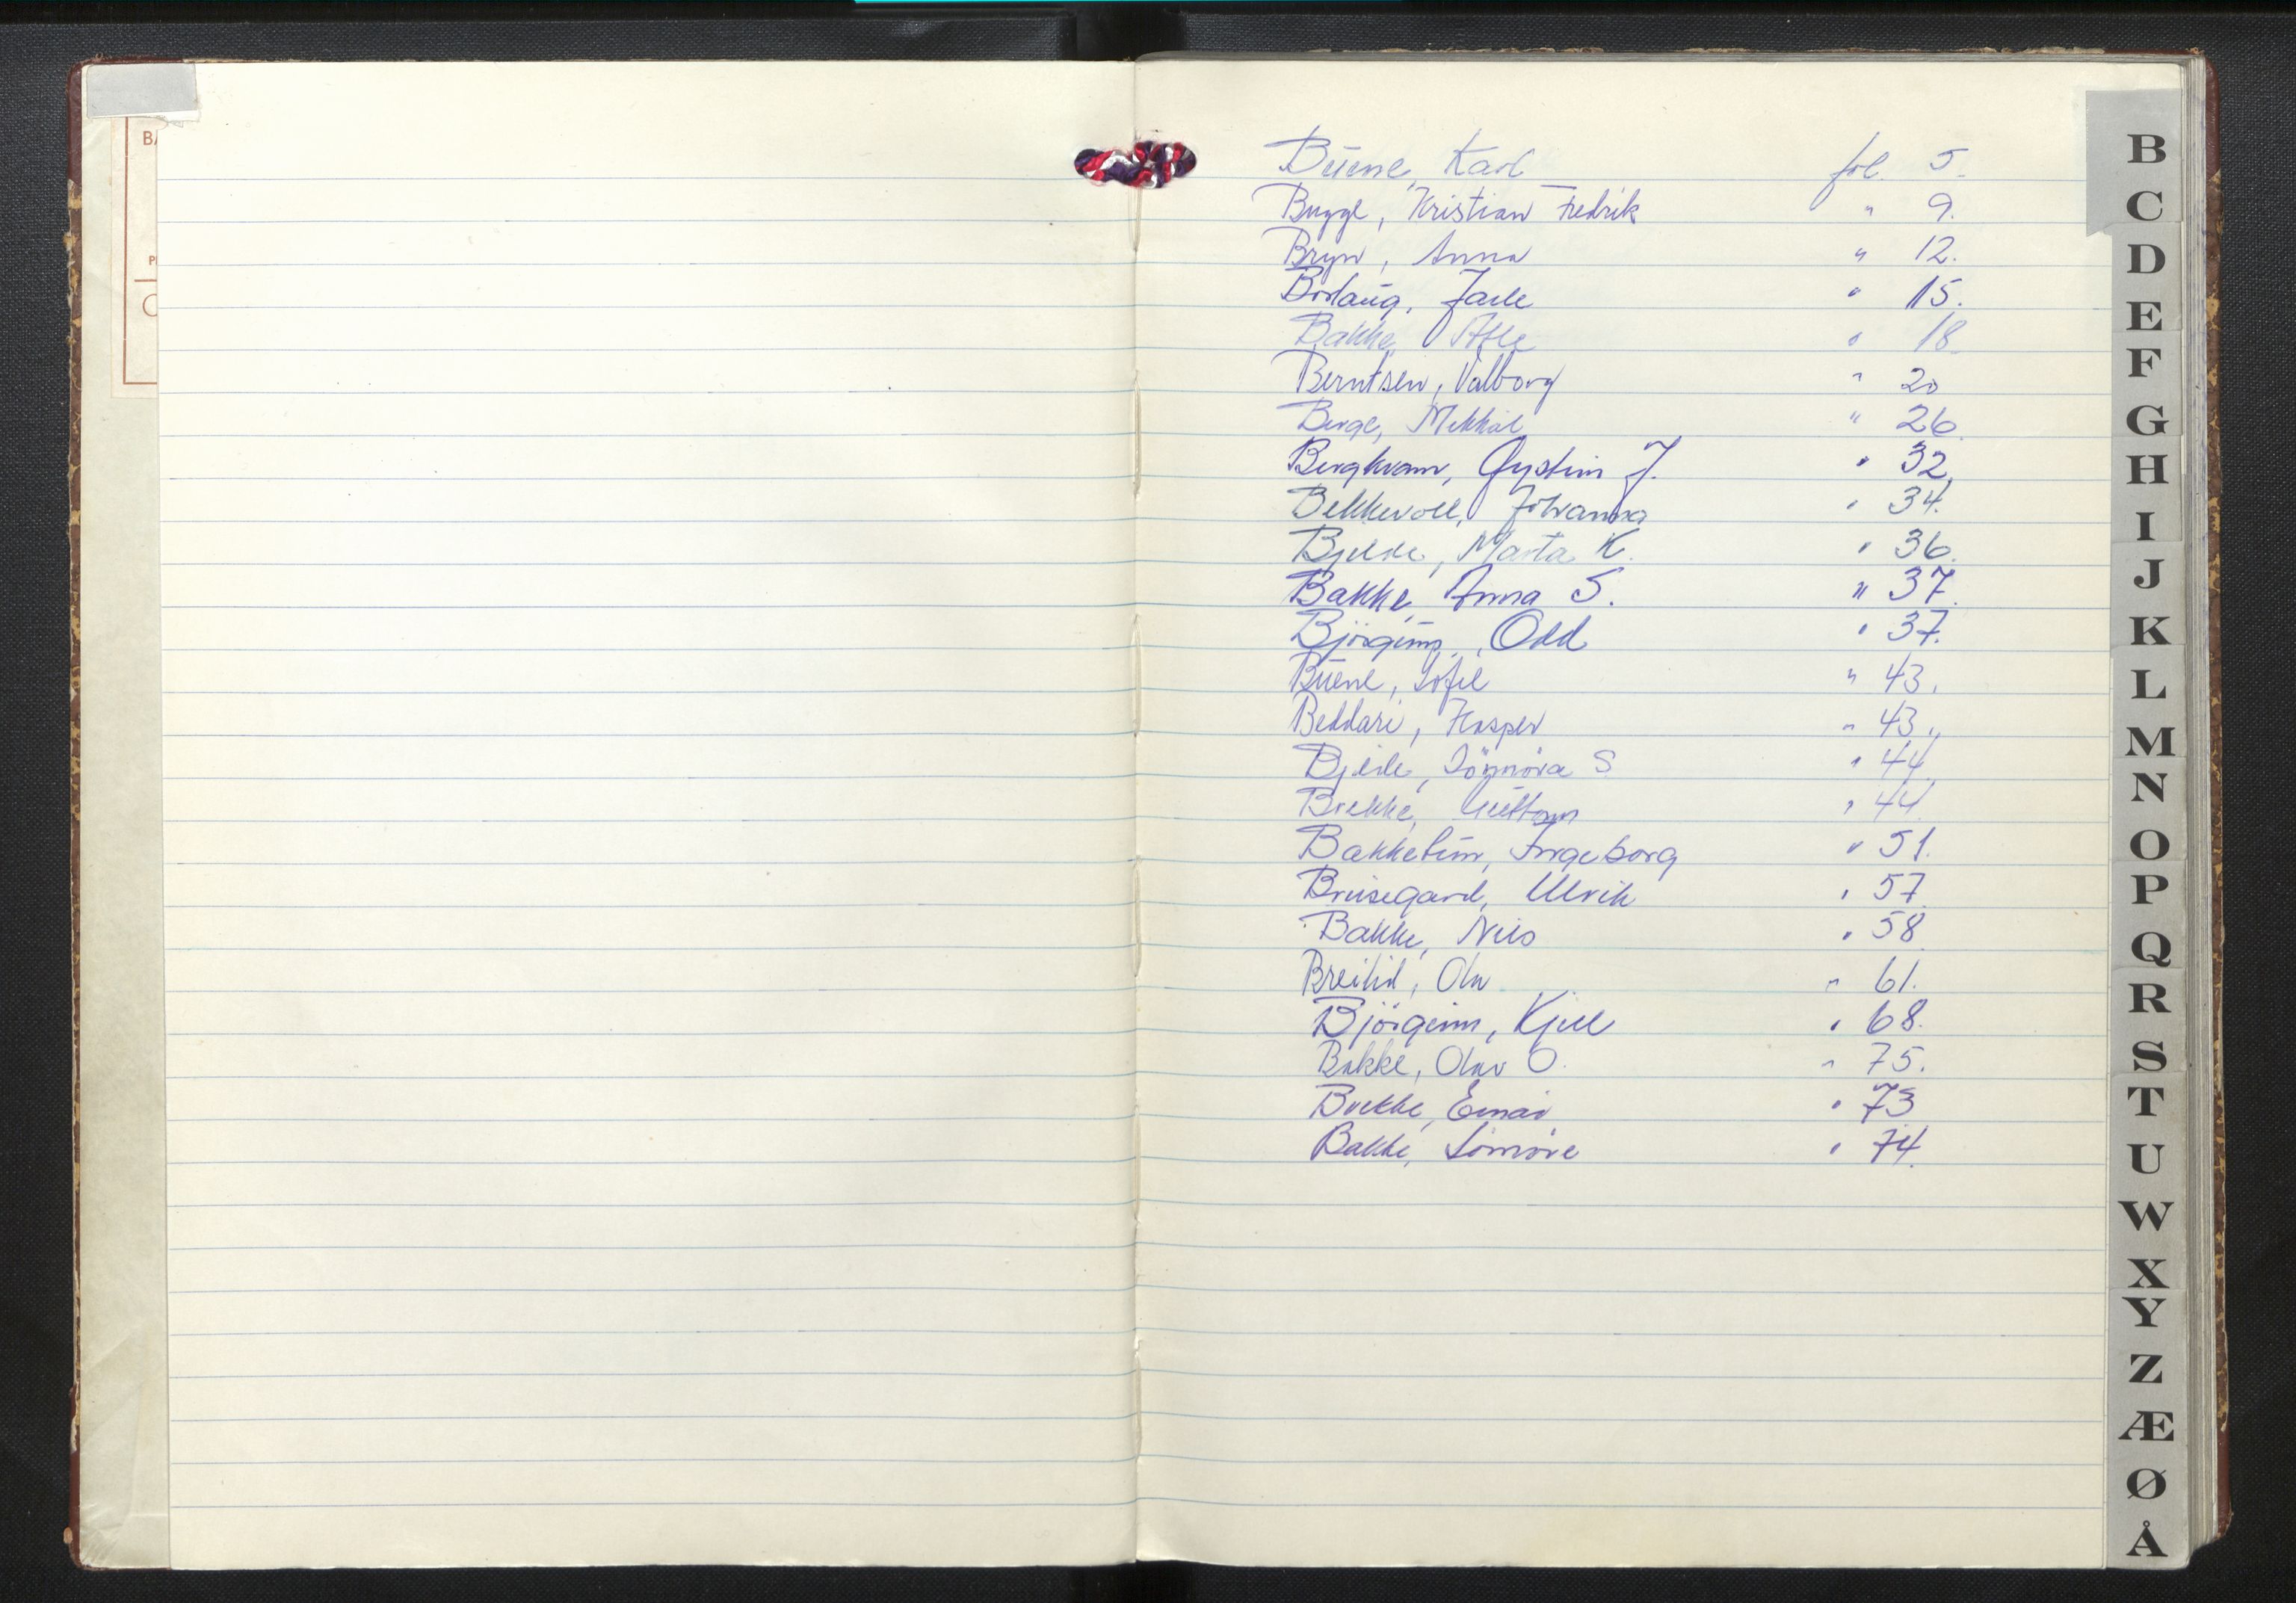 BA
P
Buene, Karl fol. 5.
Bugge, Kristian Fredrik " 9.
Bryn, Anna " 12.
Borlaug, Jarle " 15.
Bakke, Atle " 18.
Berntsen, Valborg " 20
Berge, Mikkal " 26.
Bergkvam, Øystein J. " 32.
Bekkevoll, Johanna " 34.
Bjelde, Marta K. " 36.
Bakke, Anna S. " 37.
Björgum, Odd " 37.
Buene, Sofie " 43.
Beddari, Kasper " 43.
Bjelde, Synnöva S " 44.
Brekke, Guttorm " 44.
Bakketun, Ingeborg " 51.
Brusegard, Ulrik " 57.
Bakke, Nils " 58.
Breilid, Olav " 61.
Björgum, Kjell " 68.
Bakke, Olav O. " 75.
Brekke, Einar " 73
Bakke, " 74.
B
C
D
E
F
G
H
I
J
K
L
M
N
O
P
Q
R
S
T
U
W
X
Y
Z
Æ
Ø
Å